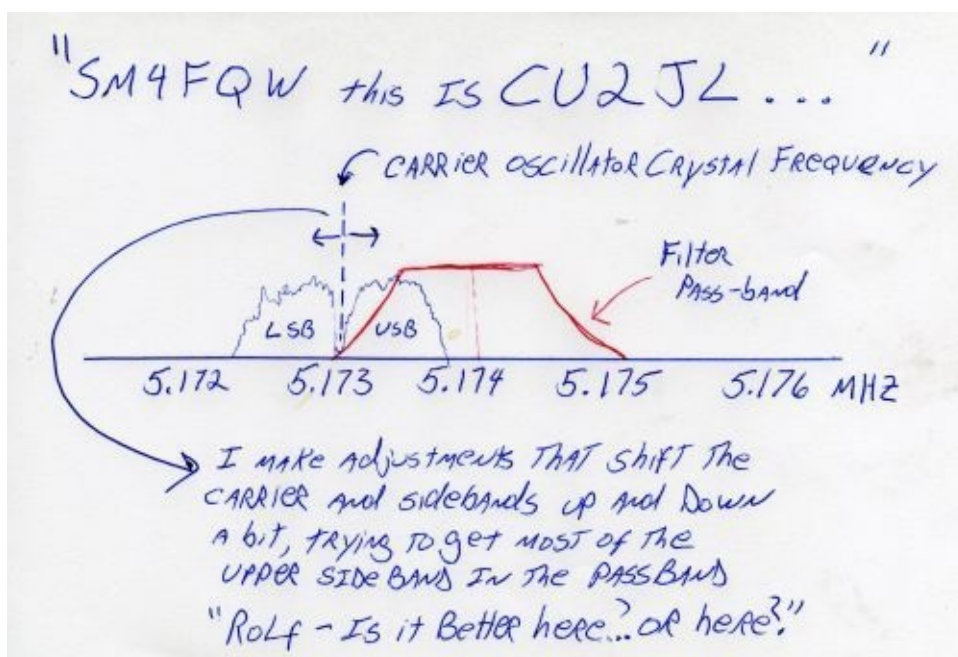 "SM4FQW this IS CU2JL..."
CARRIER OSCIllATOR CRYSTAl FREQUENCY
Filter
PASS-bAND
LSB USB
5.172 5.173 5.174 5.175 5.176 MHZ
I MAKE AdjUSTMENTS THAT Shift The
CARRIER And sidebANDS UP And DOWN
A bit, tRying TO get MOST of The
UPPER SIDE BAND IN The PASSBAND
"RoLf - Is it BetteR heRe?.. oR heRe?"